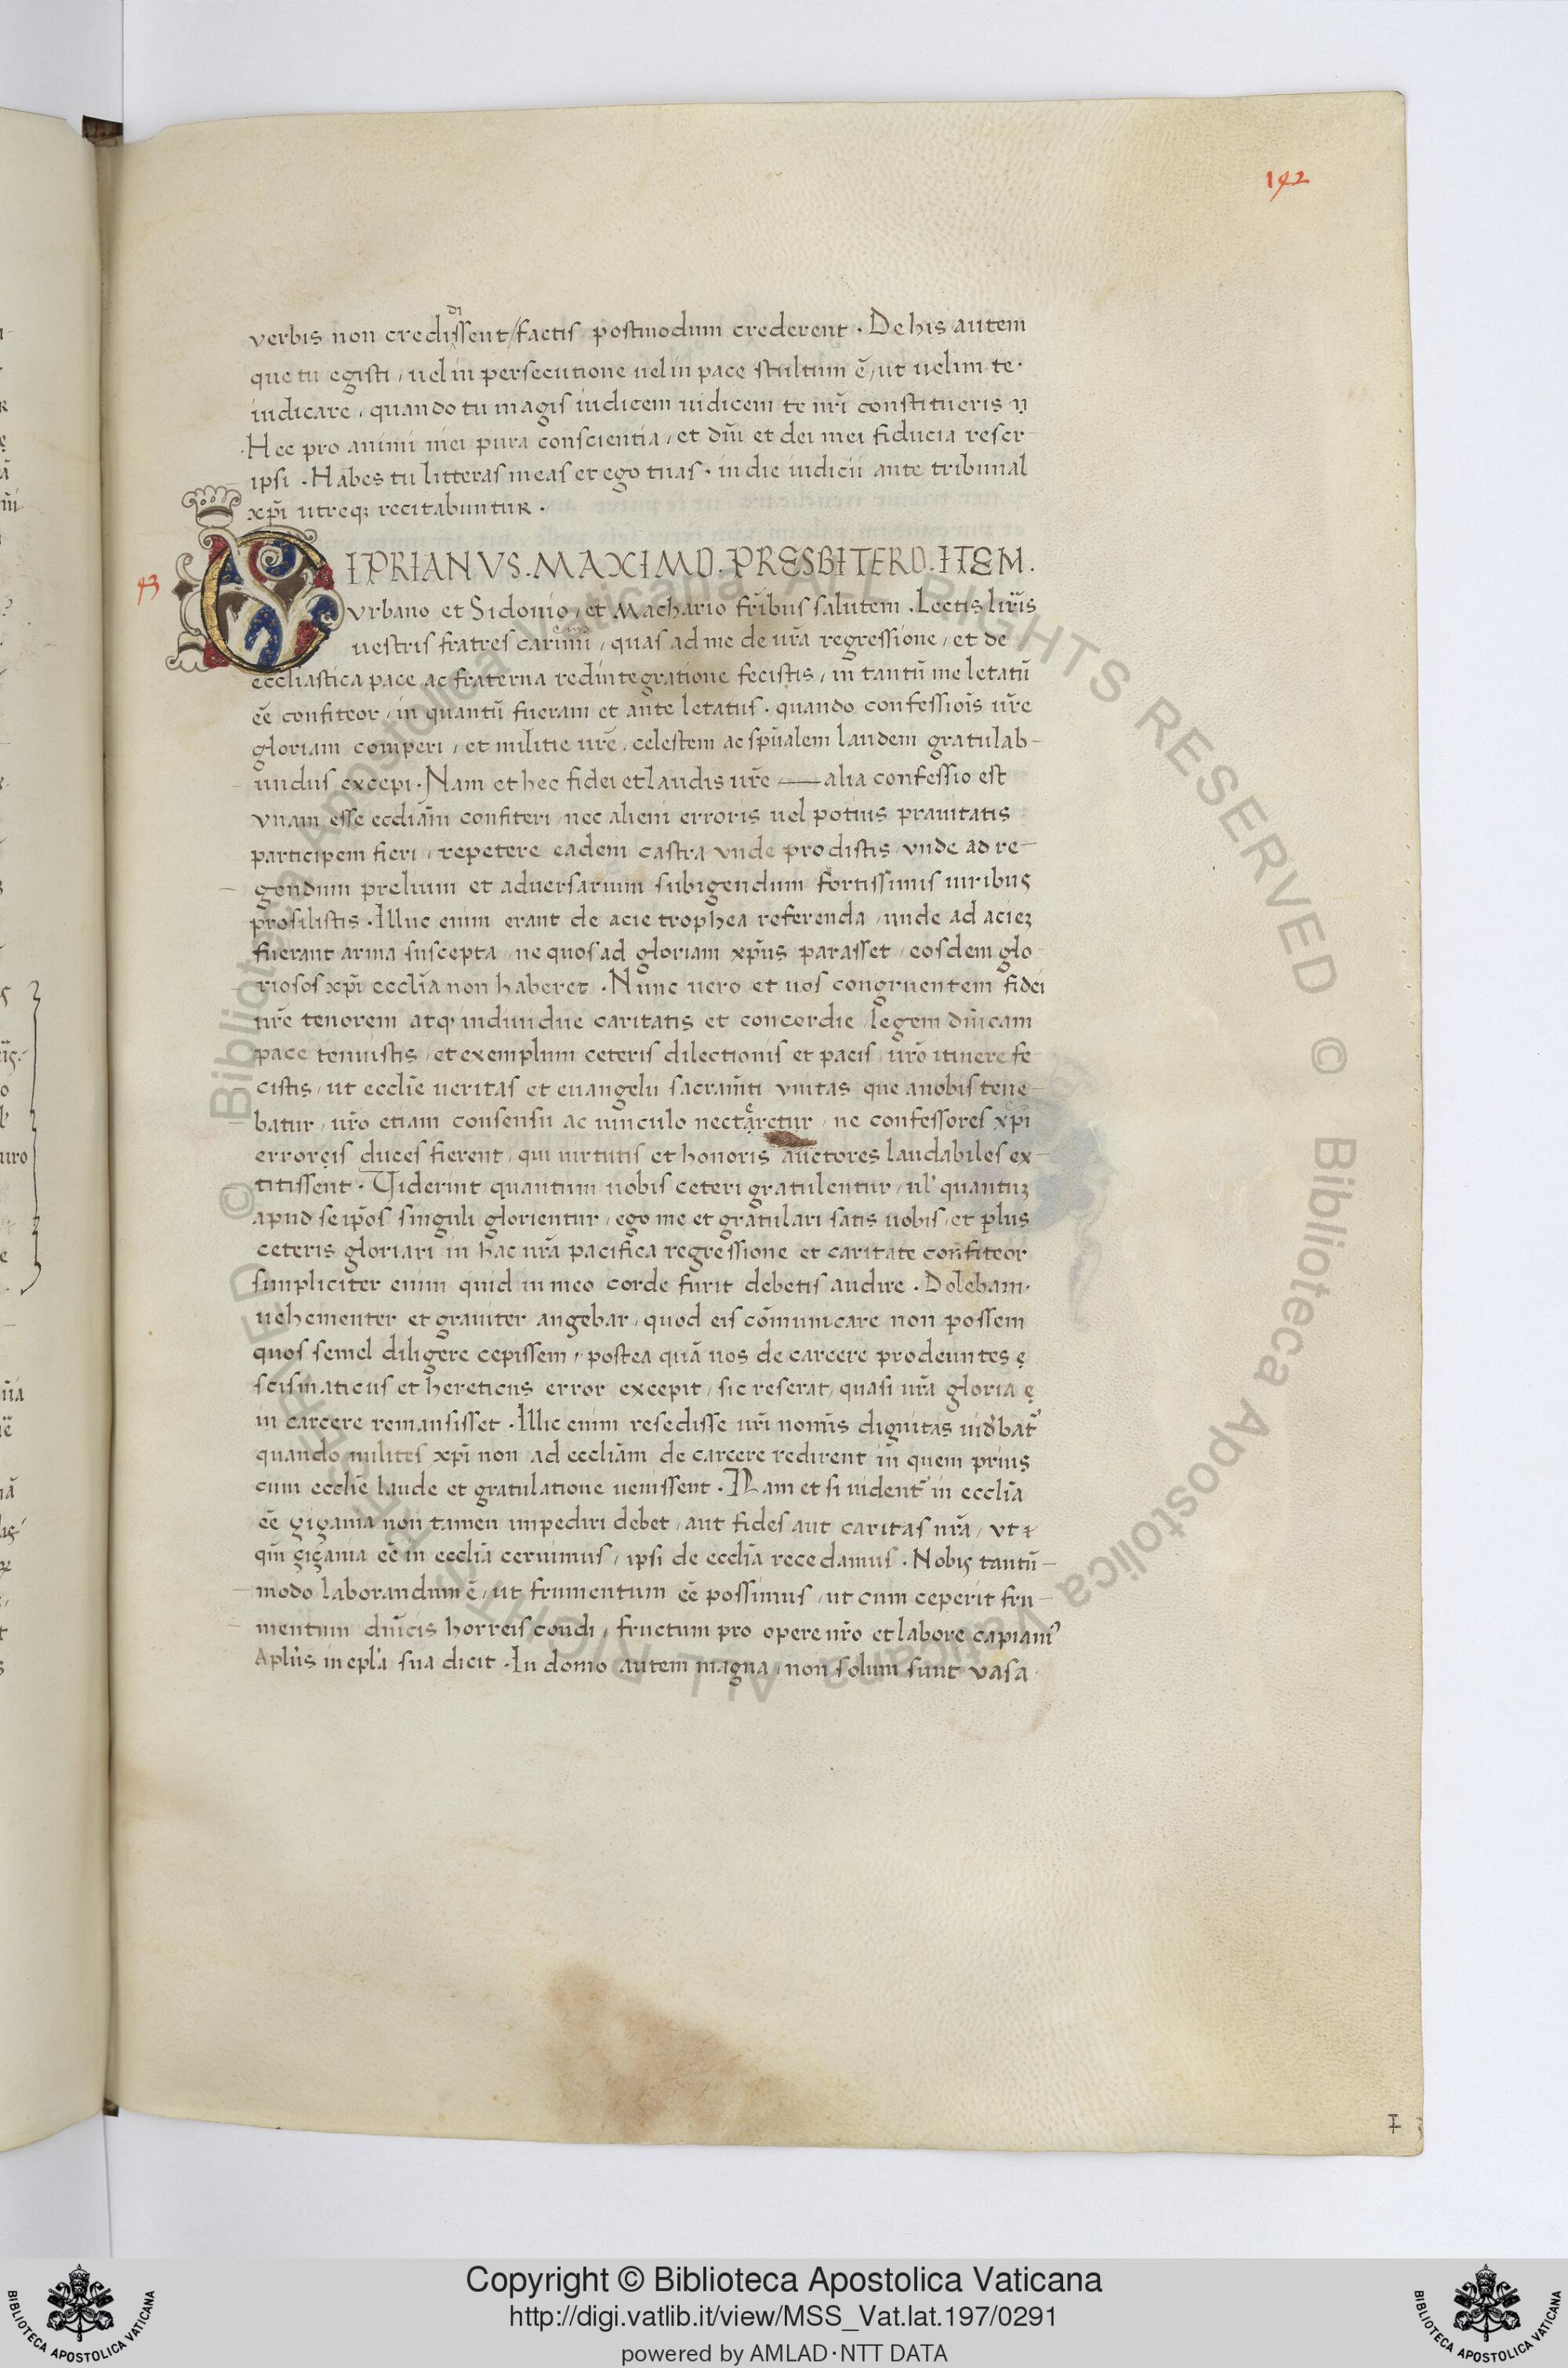 142
verbis non credidissent / factis postmodum crederent . De his autem
que tu egisti , uel in persecutione uel in pace stultum ē , ut uelim te ·
iudicare , quando tu magis iudicem iudicem te nr̄i constitueris
Hec pro animi mei pura conscientia , et dn̄i et dei mei fiducia rescr
ipsi . Habes tu litteras meas et ego tuas . in die iudicii ante tribunal
xp̄i utreqꝫ recitabuntur .
93
CIPRIANVS . MAXIMO . PRESBITERO . ITEM .
vrbano et Sidonio , et Machario fr̄ibus salutem . Lectis lr̄is
uestris fratres carimi , quas ad me de ur̄a regressione , et de
eccliastica pace ac fraterna redintegratione fecistis , in tantū me letatū
eē confiteor , in quantū fueram et ante letatus . quando confessiois̄ ur̄e
gloriam comperi , et militie ur̄e , celestem ac spūalem laudem gratulab-
undus excepi . Nam et hec fidei et laudis ur̄e — alia confessio est
vnam esse eccliām confiteri nec alieni erroris uel potius prauitatis
participem fieri , repetere eadem castra vnde prodistis , vnde ad re-
gendum prelium et aduersarium subigendum fortissimis uiribus
prosilistis . Illuc enim erant de acie trophea referenda , unde ad acieꝫ
fuerant arma suscepta , ne quos ad gloriam xp̄us parasset , eosdem glo
riosos xp̄i eccl̄ia non haberet . Nunc uero et uos congruentem fidei
ur̄e tenorem atq' indiuidue caritatis et concordie legem dn̄icam
pace tenuistis , et exemplum ceteris dilectionis et pacis , ur̄o itinere fe
cistis , ut eccl̄ie ueritas et euangelii sacram̄ti vnitas que anobis tene-
batur , ur̄o etiam consensu ac uinculo nectaretur , ne confessores xp̄i
erroreis duces fierent , qui uirtutis et honoris auctores laudabiles ex-
titissent . Viderint quantum uobis ceteri gratulentur , ul' quantuꝫ
apud se ip̄os singuli glorientur , ego me et gratulari satis uobis , et plus
ceteris gloriari in hac ur̄a pacifica regressione et caritate confiteor
simpliciter enim quid in meo corde furit debetis audire . Dolebam .
uehementer et grauiter angebar , quod eis cōmunicare non possem
quos semel diligere cepissem , postea quā uos de carcere prodeuntes ę
scismaticus et hereticus error excepit , sic reserat , quasi ur̄a gloria ę
in carcere remansisset . Illic enim resedisse ur̄i nomīs dignitas uid'bat'
quando milites xp̄i non ad eccliām de carcere redirent in quem prius
cum eccl̄ie laude et gratulatione uenissent . Nam et si uident' in eccl̄ia
eē zizania non tamen impediri debet , aut fides aut caritas nr̄a , vt
qm̄ zizania eē in eccl̄ia cernimus , ipsi de eccl̄ia recedamus . Nobis tantū-
modo laborandum ē , ut frumentum eē possimus , ut cum ceperit fru-
mentum dn̄icis horreis condi , fructum pro opere nr̄o et labore capiam'
Apl'us in epl'a sua dicit . In domo autem magna , non solum sunt vasa
Copyright © Biblioteca Apostolica Vaticana
http://digi.vatlib.it/view/MSS_Vat.lat.197/0291
powered by AMLAD·NTT DATA